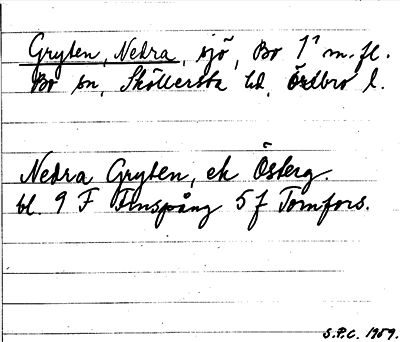 Gryten, Nedra, sjö, Bo 1⁷ m.fl.
Bo sn, Sköllersta hd, Örebro l.
Nedra Gryten, ek Österg.
bl. 9 F Finspång 5 f Tomfors.
S.P.C. 1959.